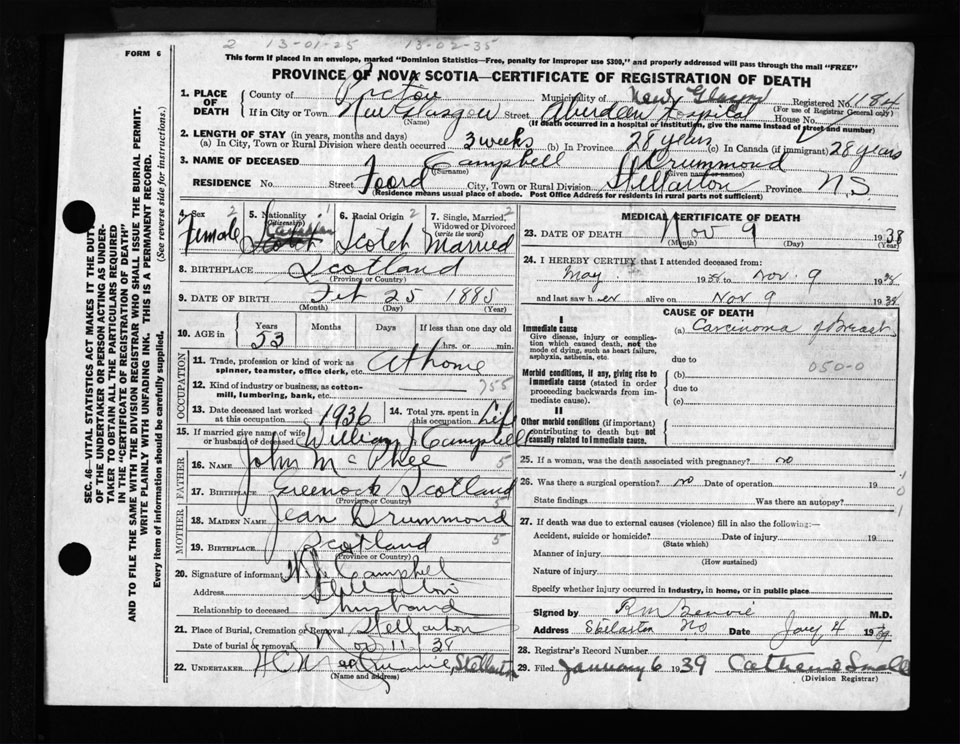 2 13-01-25 13-02-35
FORM 6
This form if placed in an envelope, marked "Dominion Statistics—Free, penalty for improper use $300," and properly addressed will pass through the mail "FREE"
PROVINCE OF NOVA SCOTIA—CERTIFICATE OF REGISTRATION OF DEATH
1. PLACE OF DEATH County of Pictou Municipality of New Glasgow Registered No. 1184
(For use of Registrar General only)
If in City or Town New Glasgow Street Aberdeen Hospital House No.
(Name) (If death occurred in a hospital or institution, give the name instead of street and number)
2. LENGTH OF STAY (in years, months and days)
(a) In City, Town or Rural Division where death occurred 3 weeks (b) In Province 28 years (c) In Canada (if immigrant) 28 years
3. NAME OF DECEASED Campbell Drummond
(Surname) (Given name or names)
RESIDENCE No. Street Foord City, Town or Rural Division Stellarton Province N.S.
(Residence means usual place of abode. Post Office Address for residents in rural parts not sufficient)
4. Sex 2 Female
5. Nationality (Citizenship) 1 Canadian Scotch
6. Racial Origin 2 Scotch
7. Single, Married, Widowed or Divorced (write the word) 2 Married
8. BIRTHPLACE Scotland
(Province or Country)
9. DATE OF BIRTH Feb 25 1885
(Month) (Day) (Year)
10. AGE in Years Months Days If less than one day old
53 hrs. or min.
OCCUPATION
11. Trade, profession or kind of work as spinner, teamster, office clerk, etc. At home
12. Kind of industry or business, as cotton-mill, lumbering, bank, etc. 755
13. Date deceased last worked at this occupation 1936
14. Total yrs. spent in this occupation Life
15. If married give name of wife or husband of deceased William J Campbell
FATHER
16. NAME John McPhee 5
17. BIRTHPLACE Greenock Scotland
(Province or Country)
MOTHER
18. MAIDEN NAME Jean Drummond
19. BIRTHPLACE Scotland 5
(Province or Country)
20. Signature of informant Campbell
Address Stellarton
Relationship to deceased husband
21. Place of Burial, Cremation or Removal Stellarton
Date of burial or removal Nov 11 38
22. UNDERTAKER Stellarton
(Name and address)
MEDICAL CERTIFICATE OF DEATH
23. DATE OF DEATH Nov 9 1938
(Month) (Day) (Year)
24. I HEREBY CERTIFY that I attended deceased from:
May 1938 to Nov. 9 1938
and last saw her alive on Nov 9 1938
CAUSE OF DEATH
I
Immediate cause (a) Carcinoma of Breast
Give disease, injury or complication which caused death, not the mode of dying, such as heart failure, asphyxia, asthenia, etc.
due to
050-0
Morbid conditions, if any, giving rise to immediate cause (stated in order proceeding backwards from immediate cause).
(b)
due to
(c)
II
Other morbid conditions (if important) contributing to death but not causally related to immediate cause.
25. If a woman, was the death associated with pregnancy? no
26. Was there a surgical operation? no Date of operation 19
State findings Was there an autopsy?
27. If death was due to external causes (violence) fill in also the following:—
Accident, suicide or homicide? Date of injury 19
(State which)
Manner of injury
(How sustained)
Nature of injury
Specify whether injury occurred in industry, in home, or in public place
Signed by R M Benvie M.D.
Address Stellarton NS Date Jany 4 1939
28. Registrar's Record Number
29. Filed January 6 1939
(Division Registrar)
SEC. 46—VITAL STATISTICS ACT MAKES IT THE DUTY
OF THE UNDERTAKER OR PERSON ACTING AS UNDER-
TAKER TO OBTAIN ALL THE PARTICULARS REQUIRED
IN THE "CERTIFICATE OF REGISTRATION OF DEATH"
AND TO FILE THE SAME WITH THE DIVISION REGISTRAR WHO SHALL ISSUE THE BURIAL PERMIT.
WRITE PLAINLY WITH UNFADING INK. THIS IS A PERMANENT RECORD.
Every item of information should be carefully supplied. (See reverse side for instructions.)